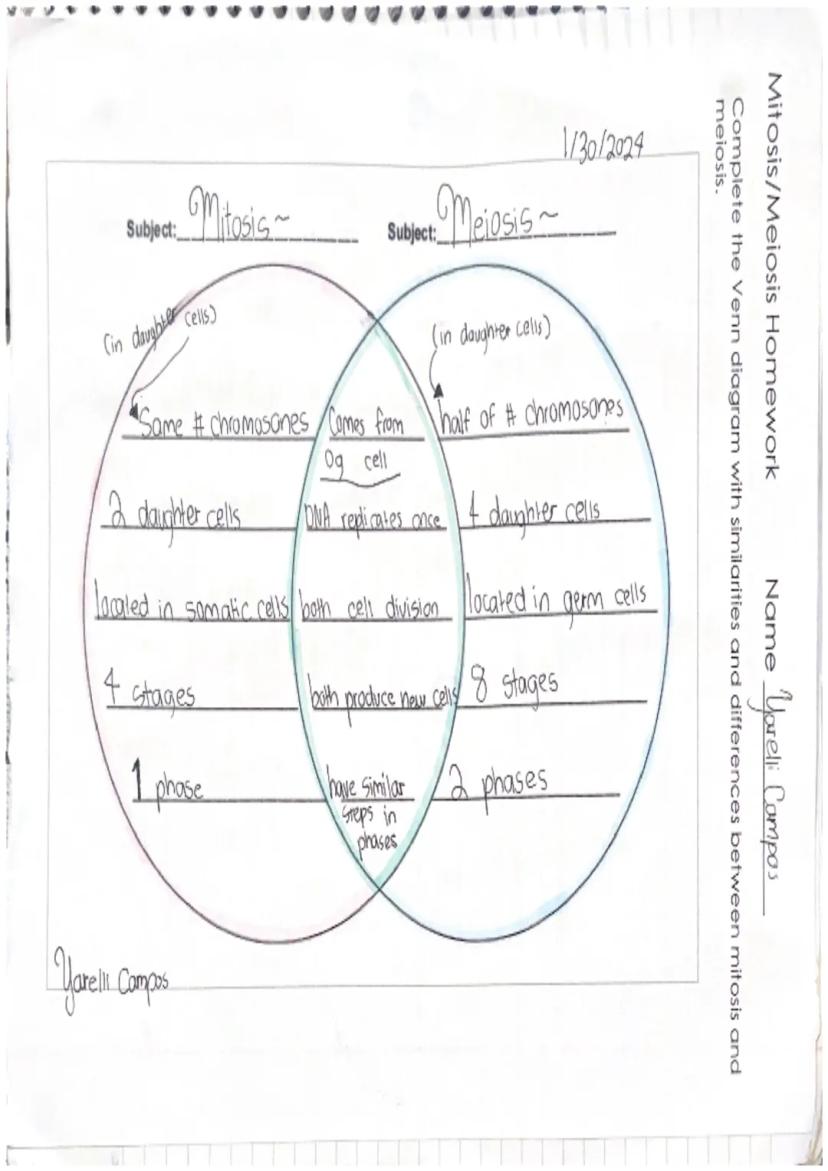 Mitosis/Meiosis Homework Name Yarelli Campos
Complete the Venn diagram with similarities and differences between mitosis and
meiosis.
1/30/2024
Subject: Mitosis~
Subject: Meiosis~
(in daughter cells)
Same # chromosones
2 daughter cells
located in somatic cells
4 stages
1 phase
Comes from
Og cell
DNA replicates once
both cell division
both produce new cells
have similar
steps in
phases
(in daughter cells)
half of # chromosones
4 daughter cells
located in germ cells
8 stages
2 phases
Yarelli Campos